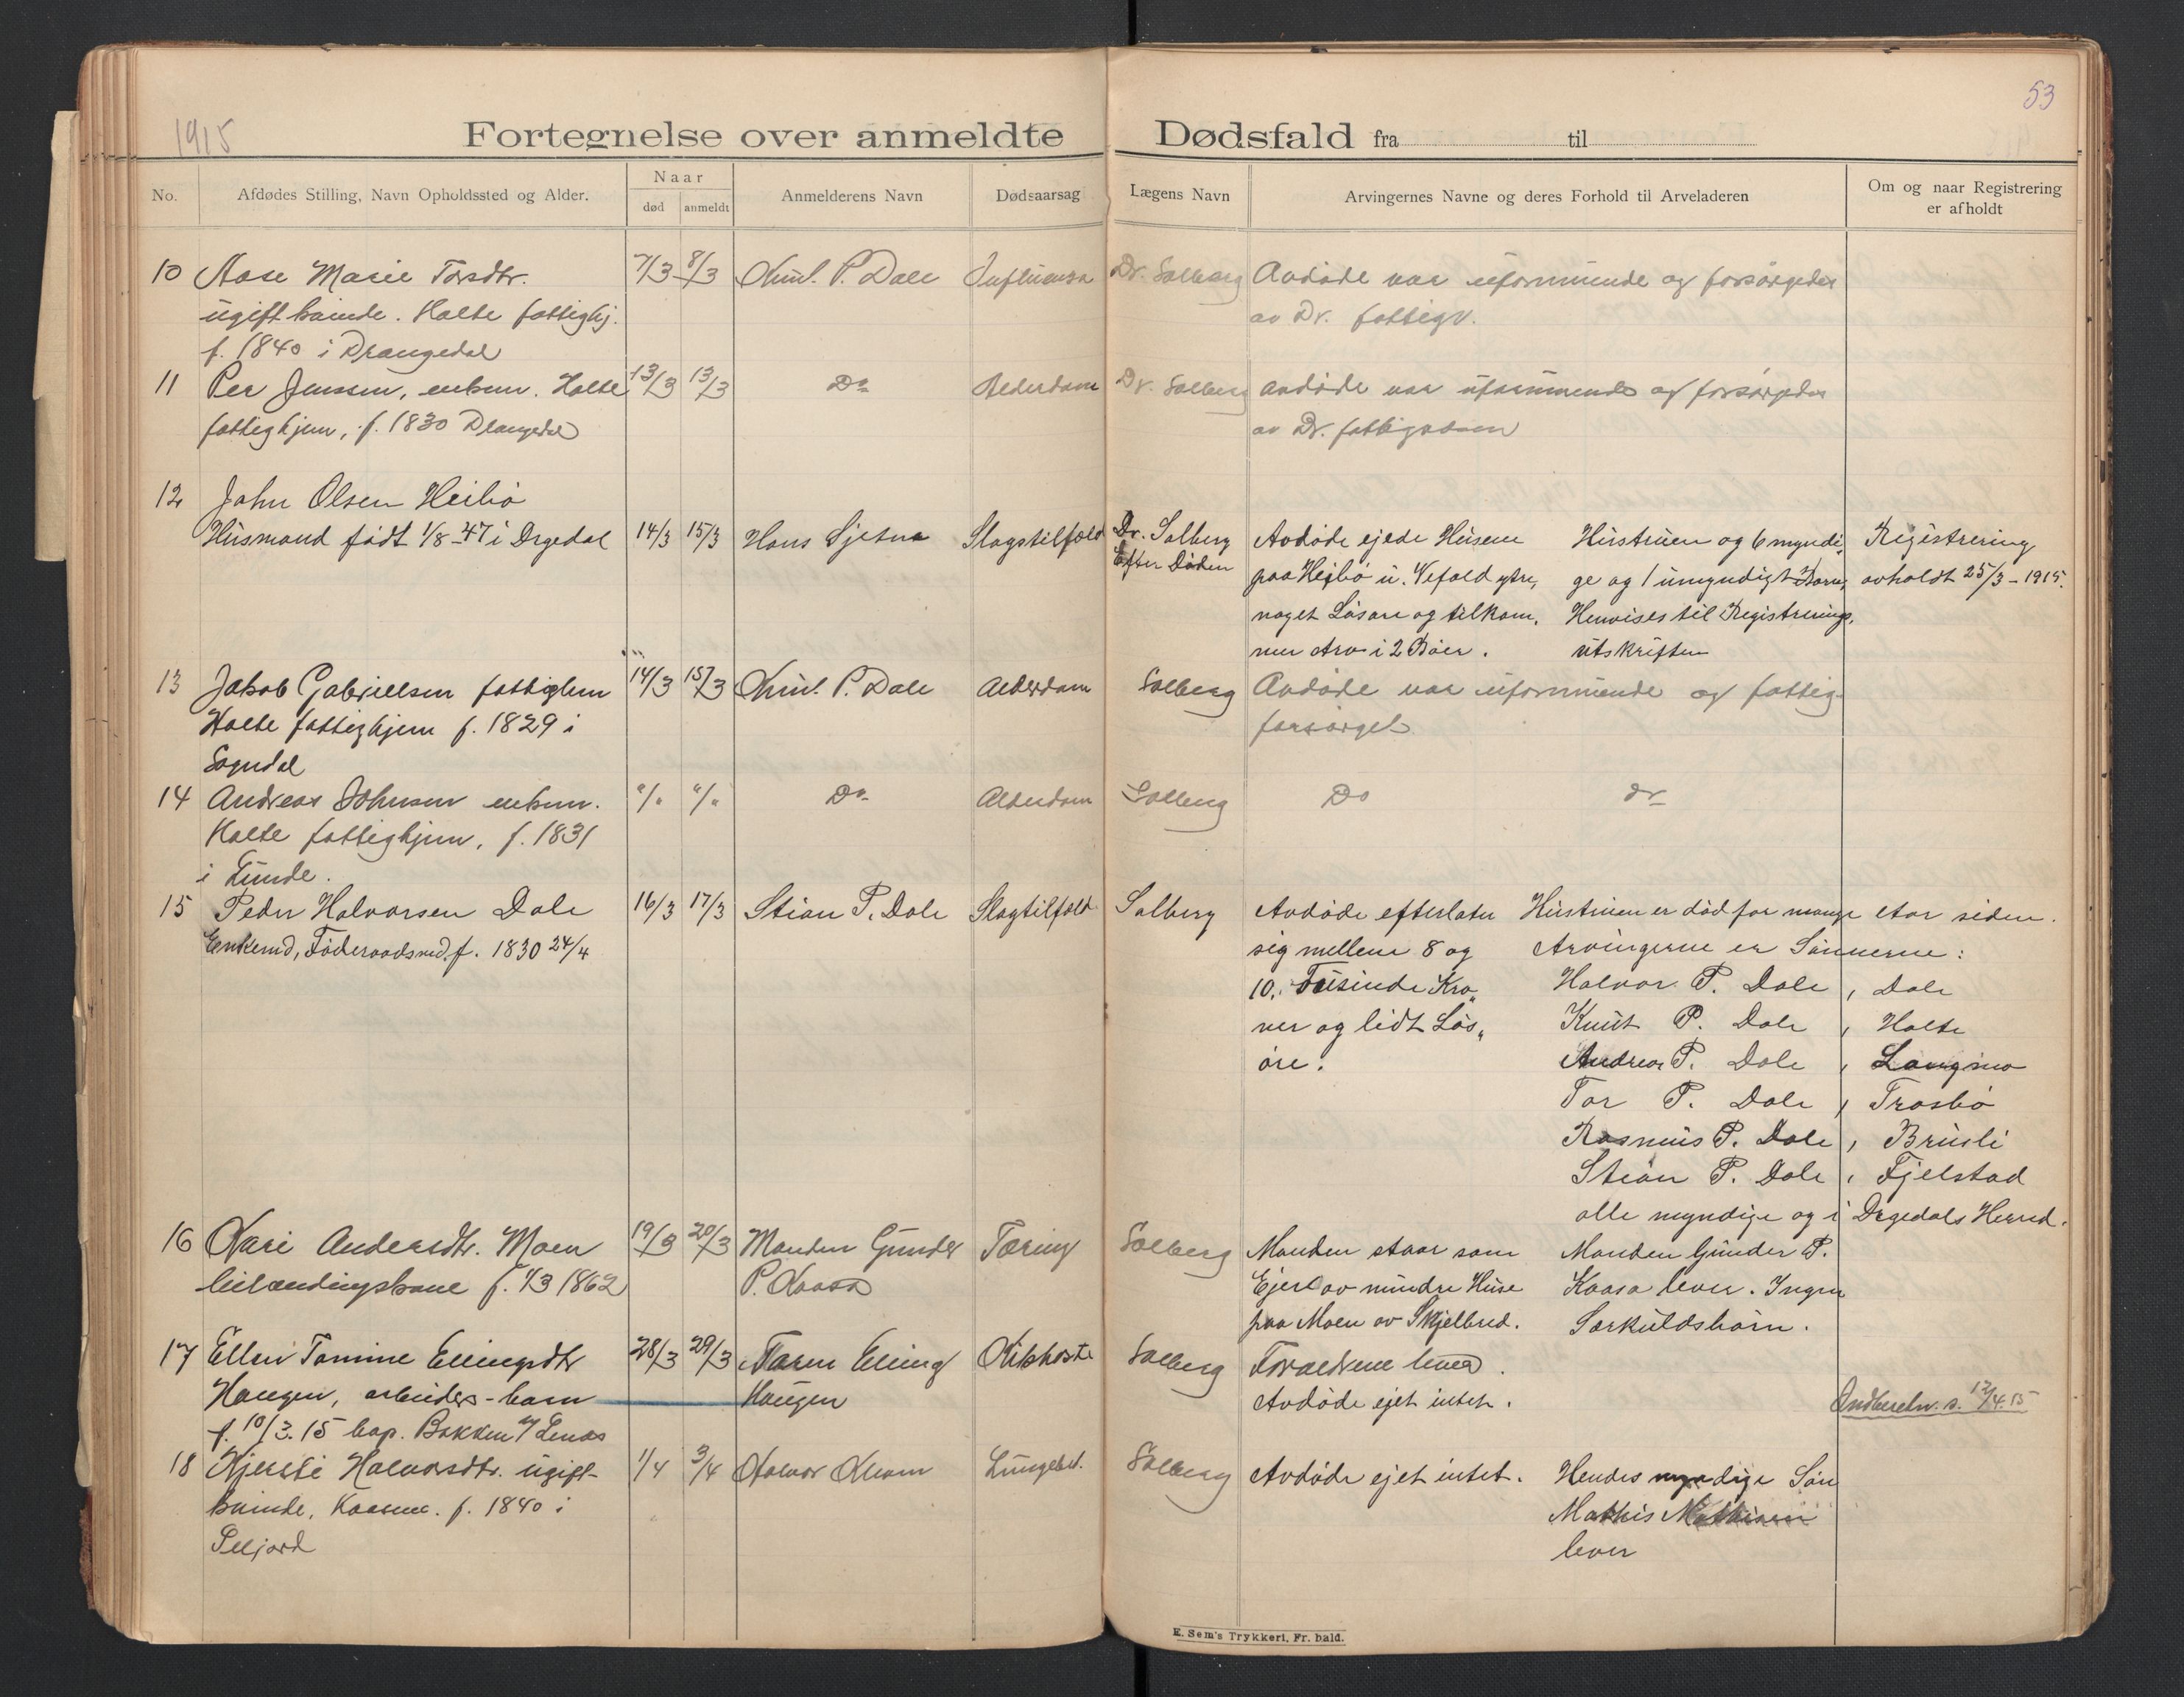 1915
53
Fortegnelse over anmeldte Dødsfald fra til
No.
Afdødes Stilling, Navn Opholdssted og Alder.
Naar
død
anmeldt
Anmelderens Navn
Dødsaarsag
Lægens Navn
Arvingernes Navne og deres Forhold til Arveladeren
Om og naar Registrering
er afholdt
10 Aase Marie Torsdtr. 7/3 8/3 Knut P. Dale Influensa Dr. Solberg Avdøde var uformuende og forsørgedes
ugift kvinde. Holte fattighj. av Dr. fattigv.
f. 1840 i Drangedal
11 Per Jenssen, enkem. Holte 13/3 13/3 Do Alderdom Dr. Solberg avdøde var uformuende og forsørgedes
fattighjem, f. 1830 Drangedal av Dr. fattigvæsen
12 John Olsen Heibø
Husmand født 1/8-47 i Drgedal 14/3 15/3 Hans Gjetna Slagtilfæld Dr. Solberg Avdøde ejede Husene Hustruen og 6 myndi- Registrering
Efter Døden paa Hejbø u. Vefald ytre, ge og 1 umyndigt Barn, avholdt 25/3-1915.
noget Løsøre og tilkom, Henvises til Registrerings,
mer Arv i 2 Boer. utskriften
13 Jakob Gabrielsen fattiglem 14/3 15/3 Knut P. Dale Alderdom Solberg Avdøde var uformuende og fattig-
Holte fattighjem f. 1829 i forsørget
Sogndal
14 Andreas Johnsen enkem. "/" "/" Do Alderdom Solberg Do do
Holte fattighjem, f. 1831
i Lunde.
15 Peder Halvorsen Dale 16/3 17/3 Stian P. Dale Slagtilfæld Solberg Avdøde efterlater Hustruen er død for mange Aar siden.
Enkemd, Føderaadsmd. f. 1830 24/4 sig mellem 8 og Arvingerne er Sønnerne:
10, Tusinde Kro„ Halvor P. Dale, Dale
ner og lidt Løs„ Knut P. Dale, Holte
øre. Andreas P. Dale, Langmo
Tor P. Dale, Trosbø
Rasmus P. Dale, Brusli
Stian P. Dale, Fjelstad
alle myndige og i Drgedals Herred.
16 Kari Andersdtr. Moen 19/3 20/3 Manden Gunder Tæring Solberg Manden staar som Manden Gunder P.
leilændingskone f. 1/3 1862 P. Kaasa Ejer av mindre Huse Kaasa lever. Ingen
paa Moen av Skjelbred. Særkuldsbørn.
17 Ellen Tomine Ellingsdtr 28/3 29/3 Faren Elling Kikhoste Solberg Forældrene lever.
Haugen, arbeiders-barn Haugen Avdøde ejet intet. 12/4.15
f. 10/3.15 Bakken
18 Kjersti Halvorsdtr. ugift 1/4 3/4 Halvor Kleven Lungebet. Solberg Avdøde ejet intet. Hendes myndige Søn
kvinde, Kaasene. f. 1840 i Mathis Mathisen
Seljord lever
E. Sem's Trykkeri, Fr. hald.